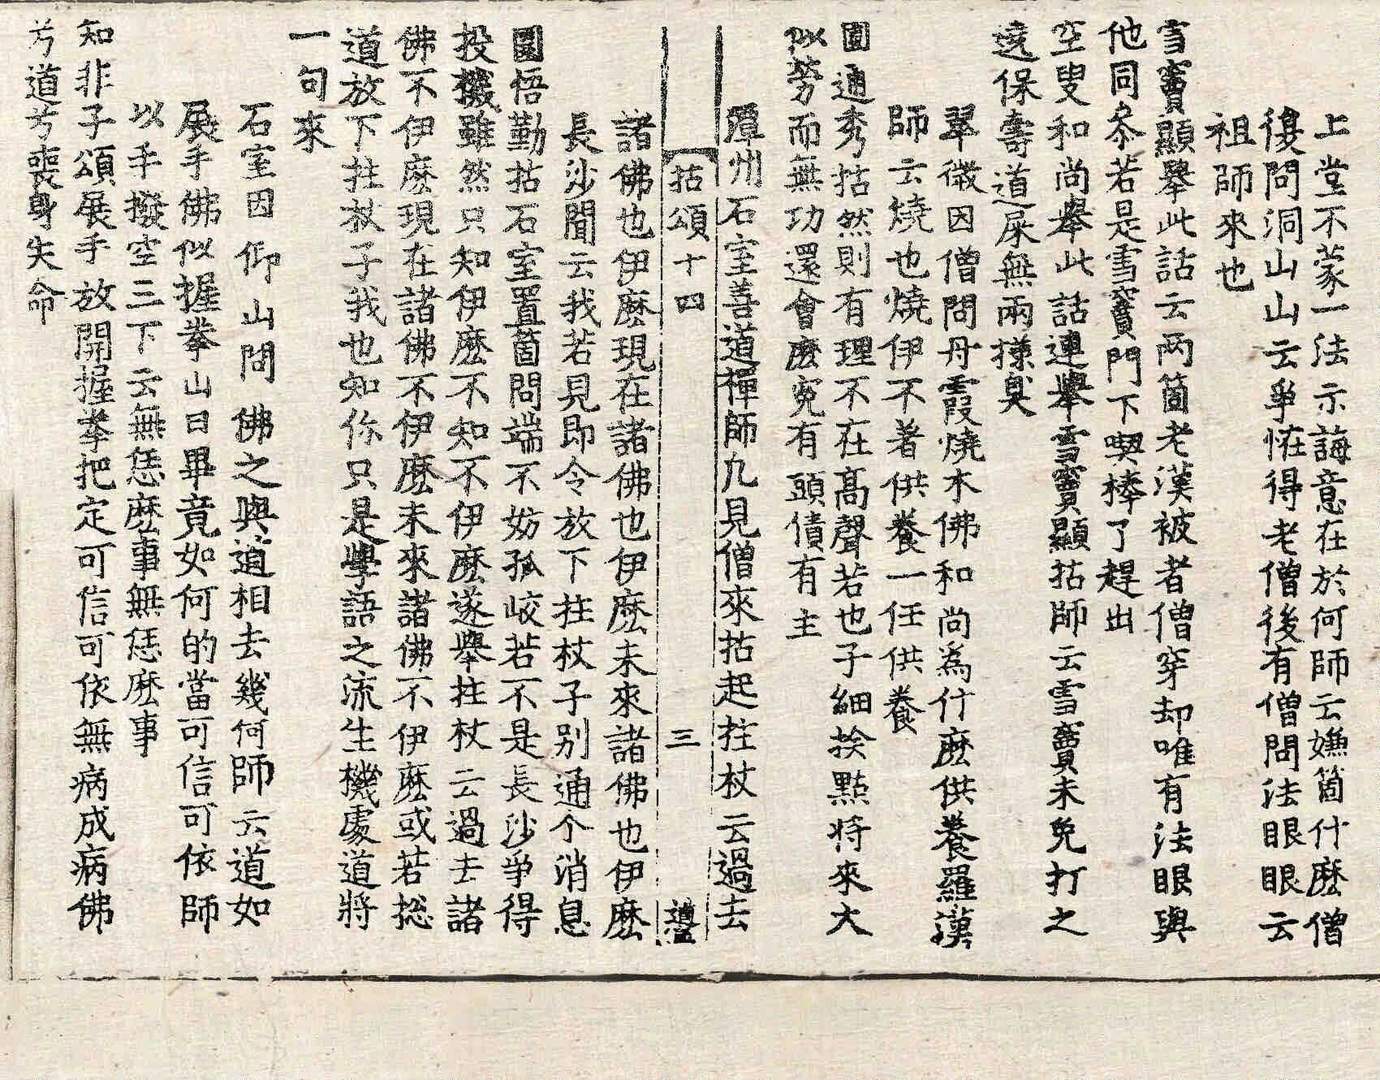 上堂不蒙一法示誨意在於何師云嫌箇什麽僧
復問洞山山云爭恠得老僧後有僧問法眼眼云
祖師來也
雪竇顯擧此話云兩箇老漢被者僧穿却唯有法眼與
他同叅若是雪竇門下喫棒了趕出
空叟和尚擧此話連擧雪竇顯拈師云雪竇未免打之
遶保壽道屎無兩㨾臭
翠微因僧問丹霞燒木佛和尚爲什麽供養羅漢
師云燒也燒伊不著供養一任供養
圎通秀拈然則有理不在髙聲若也子細挨㸃將來大
似勞而無功還會麽寃有頭債有主
潭州石室善道禪師凢見僧來拈起拄杖云過去
拈頌十四 三 遵
諸佛也伊麽現在諸佛也伊麽未來諸佛也伊麽
長沙聞云我若見即令放下拄杖子別通个消息
圜悟勤拈石室置箇問端不妨孤峻若不是長沙爭得
投機雖然只知伊麽不知不伊麽遂擧拄杖云過去諸
佛不伊麽現在諸佛不伊麽未來諸佛不伊麽或若捴
道放下拄杖子我也知你只是學語之流生機處道將
一句來
石室因仰山問佛之與道相去幾何師云道如
展手佛似握拳山曰畢竟如何的當可信可依師
以手撥空三下云無恁麽事無恁麽事
知非子頌展手放開握拳把定可信可依無病成病佛
兮道兮喪身失命